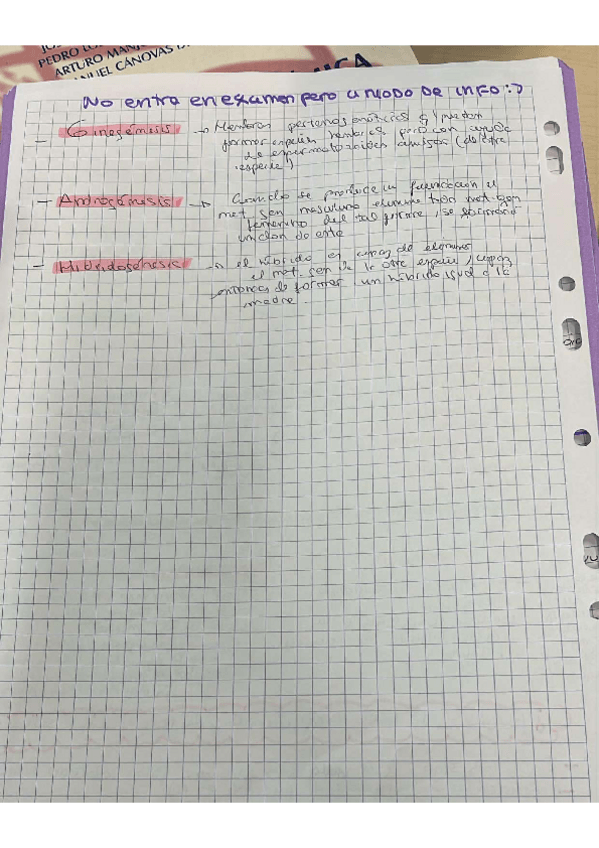 PEDRO LO
ARTURO MANJ
NUEL CÁNOVAS D
MICA
No entra en examen pero a modo de info :)
- Ginogénesis → Hembras partenogenéticas q pueden
formar espe hembras pero con ayuda
de espermatozoides (de otra
especie)
- Androgénesis → Cuando se produce la fecundación el
mat. gen masculino elimina mat. gen
femenino del , se formará
un clon de este
- Hibridogénesis → el híbrido es capaz de eliminar
el mat. gen de la otra especie, capaz
entonces de formar un híbrido igual a la
madre